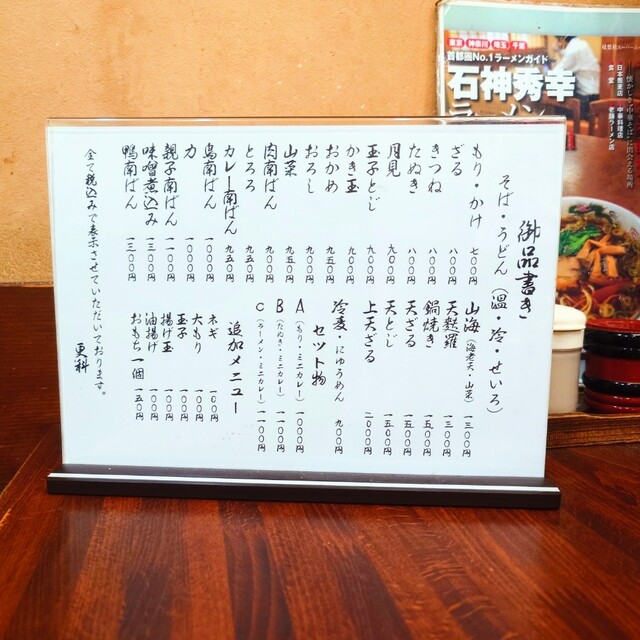 御品書き
そば・うどん（温・冷・せいろ）
もり・かけ 七〇〇円
ざる 八〇〇円
きつね 八〇〇円
たぬき 八〇〇円
月見 九〇〇円
玉子とじ 九〇〇円
かき玉 九〇〇円
おかめ 九五〇円
おろし 九〇〇円
山菜 九五〇円
肉南ばん 九〇〇円
とろろ 九五〇円
カレー南ばん 九五〇円
鳥南ばん 一〇〇〇円
力 一〇〇〇円
親子南ばん 一一〇〇円
味噌煮込み 一三〇〇円
鴨南ばん 一三〇〇円
山海（海老天・山菜） 一三〇〇円
天麩羅 一三〇〇円
鍋焼き 一五〇〇円
天ざる 一五〇〇円
天とじ 一五〇〇円
上天ざる 二〇〇〇円
冷麦・にゅうめん 九〇〇円
セット物
A（もり・ミニカレー） 一〇〇〇円
B（たぬき・ミニカレー） 一一〇〇円
C（ラーメン・ミニカレー） 一一〇〇円
追加メニュー
ネギ 一〇〇円
大もり 一〇〇円
玉子 一〇〇円
揚げ玉 一〇〇円
油揚げ 一〇〇円
おもち 一個 一五〇円
全て税込みで表示させていただいております。
更科
東京 神奈川 埼玉 千葉
首都圏No.1ラーメンガイド
石神秀幸
ラーメン
日本蕎麦店
食堂
中華料理店
老舗ラーメン店